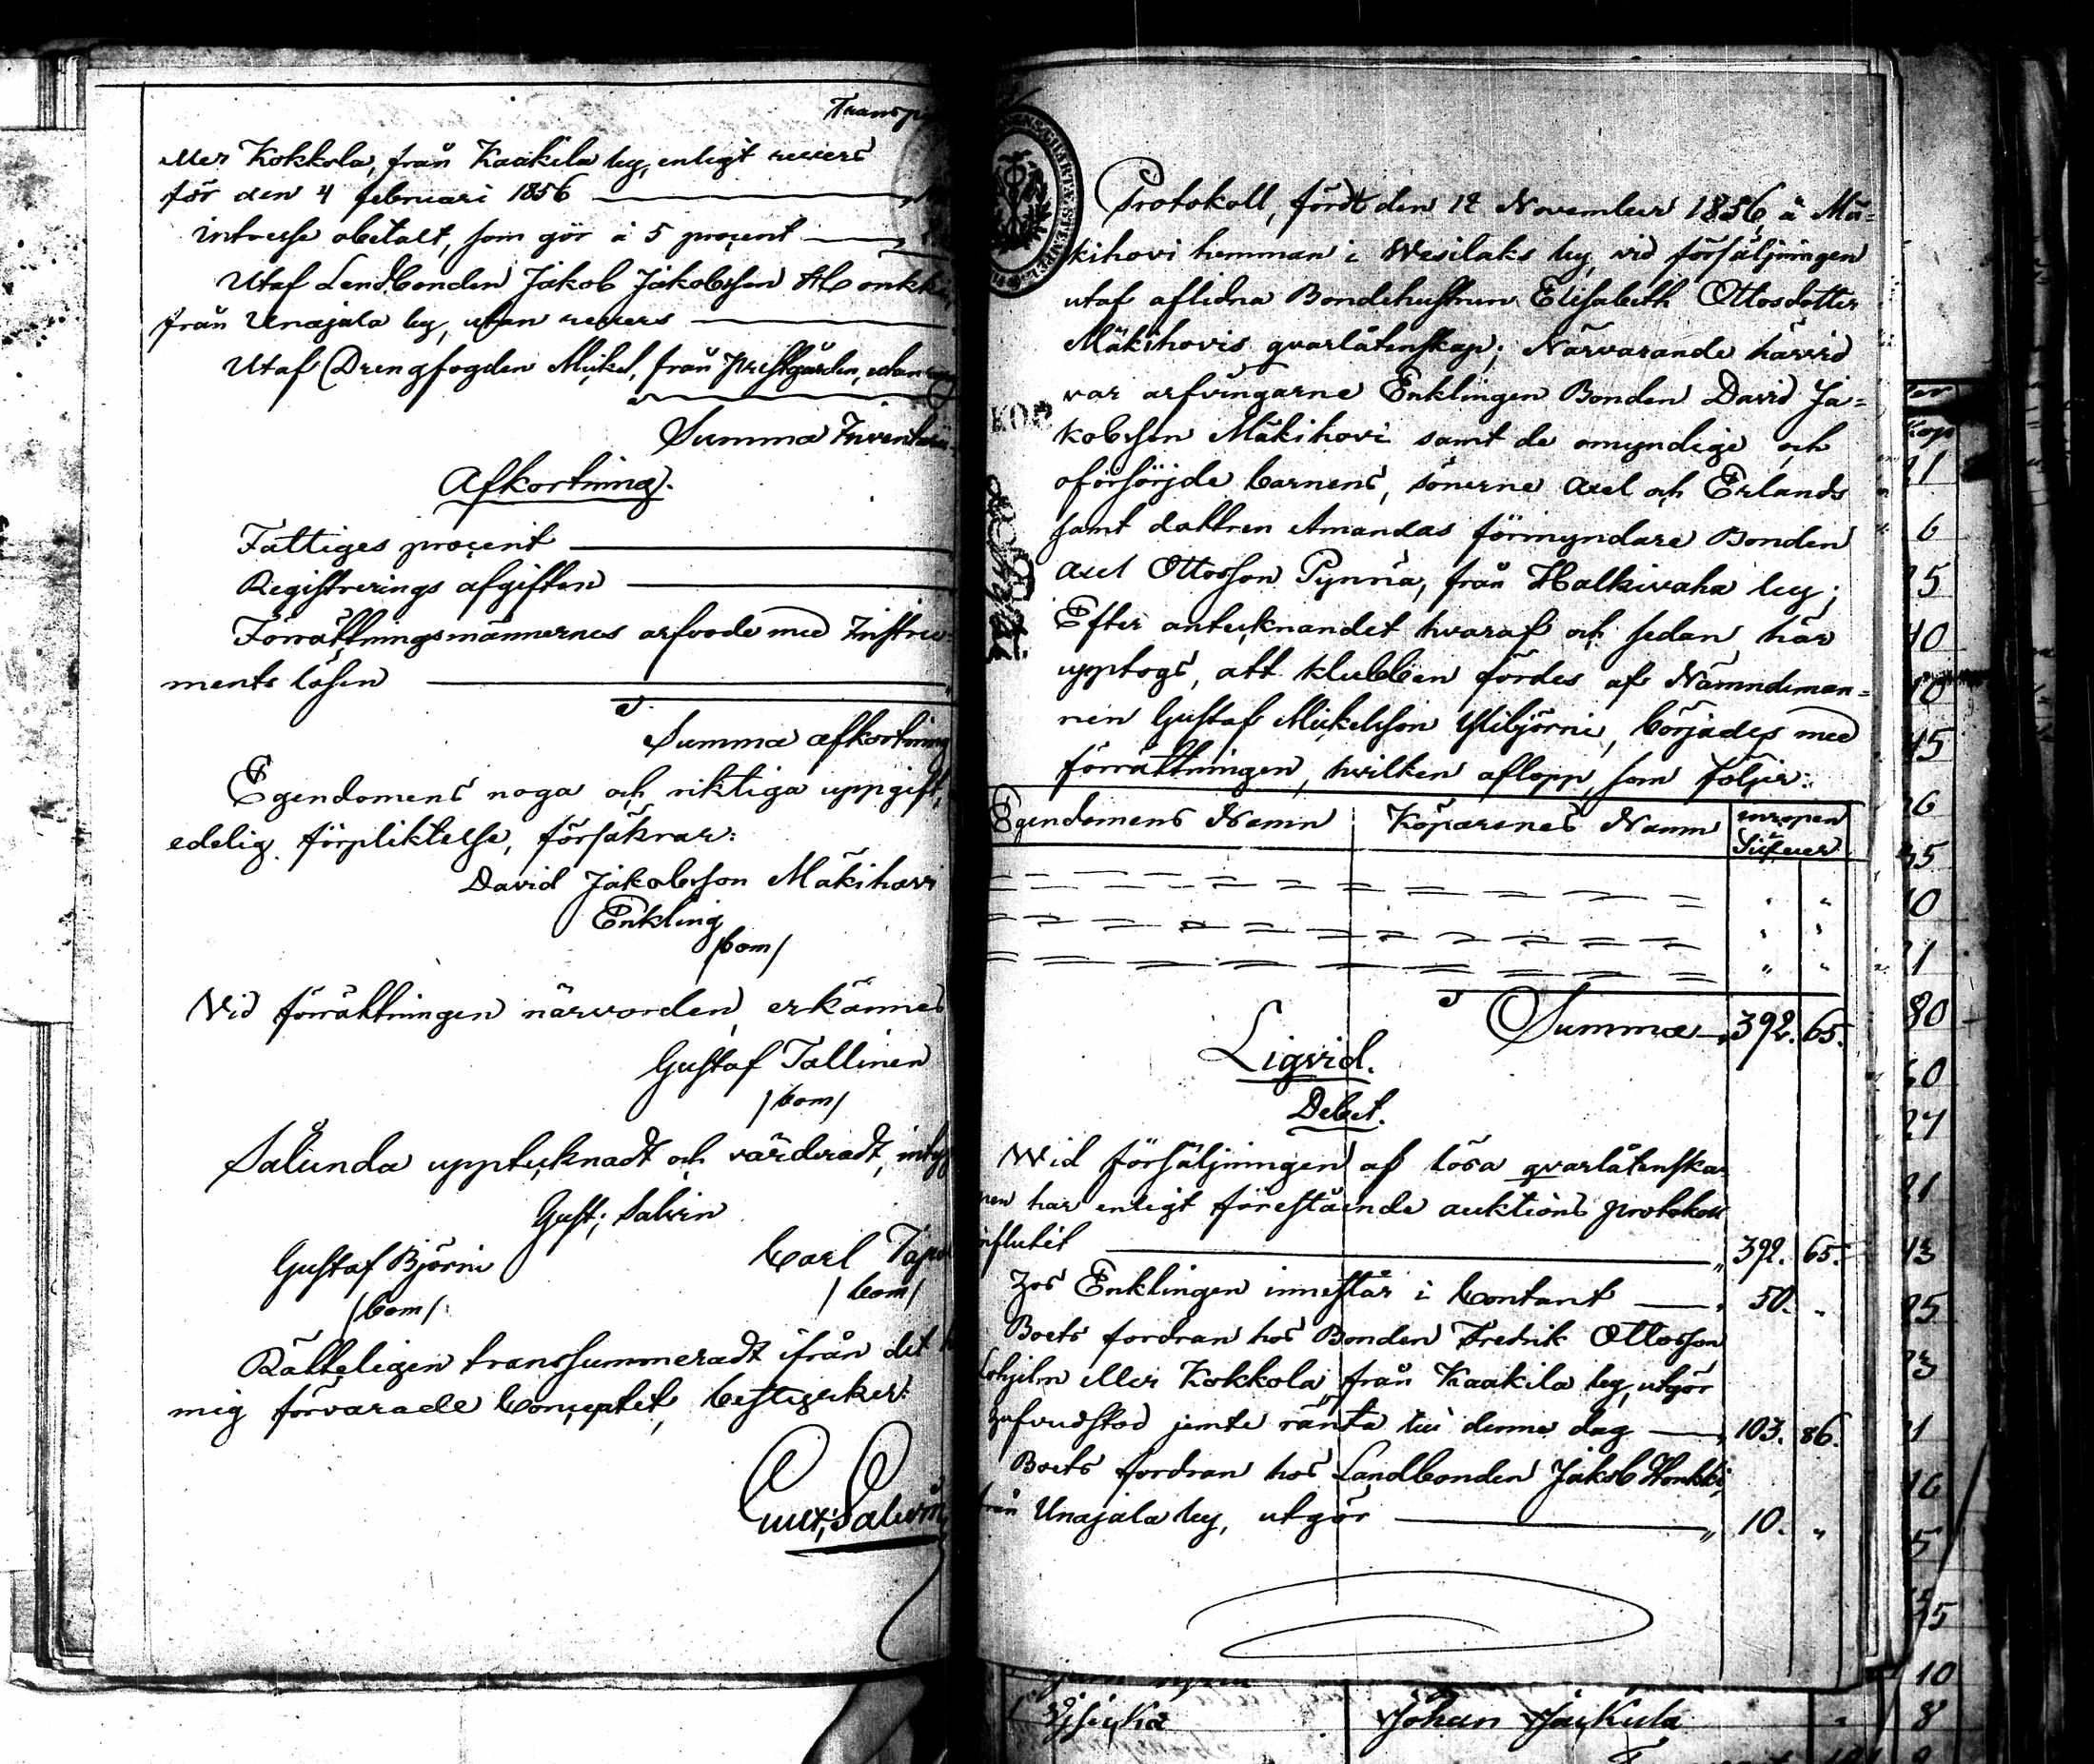 Transp
eller Kokkola, från Kaakila by, enligt revers
för den 4 februari 1856
intresse obetalt, som gör á 5 procent
Utaf Landbonden Jakob Jakobsson Honkki
från Unajala by, utan revers
Utaf Drengfogden Mickel, från Prestgården, utan
Summa Inventarii
Afkortning.
Fattiges procent
Registrerings afgiften
Förrättningsmännernes arfvode med Instru-
ments lösen
Summa afkortning
Egendomens noga och riktiga uppgift,
edelig förpliktelse, försäkrar:
David Jakobsson Mäkihovi
Enkling
/bom/
Vid förrättningen närvorden, erkännes
Gustaf Tallinen
/bom/
Sålunda upptecknadt och värderadt, intyg
Gust; Salvin
Gustaf Björni Carl
/bom/ /bom/
Rätteligen transsummeradt ifrån det
mig förvarade Conceptet, bestyrker:
Gust; Salvin
Protokoll, fördt den 12 November 1856, å Mä-
kihovi hemman i Wesilaks by, vid försäljningen
utaf aflidna Bondehustrun Elisabeth Ottosdotter
Mäkihovis qvarlåtenskap; Närvarande härvid
var arfvingarne Enklingen Bonden David Ja-
kobsson Mäkihovi samt de omyndige och
oförsörjde barnens, sönerne Axel och Erlands
samt dottren Amandas förmyndare Bonden
Axel Ottosson Pynnä, från Halkivaha by;
Efter antecknandet hvaraf och sedan här
upptogs, att klubben fördes af Nämndeman-
nen Gustaf Mickelsson Ylibjörni, börjades med
förrättningen, hvilken aflopp, som följer:
Egendomens Namn Köparenes Namn
Silfver
Summa 392. 65.
Liqvid.
Debet.
Wid försäljningen af lösa qvarlåtenska-
pen har enligt förestående auktions protokoll
influtit 392. 65.
Hos Enklingen innestår i Contant 50. "
Boets fordran hos Bonden Fredrik Ottosson
eller Kokkola, från Kaakila by, utgör
hufvudstod jemte ränta till denna dag 103. 86.
Boets fordran hos Landbonden Jakob Honkki,
från Unajala by, utgör 10. "
Johan